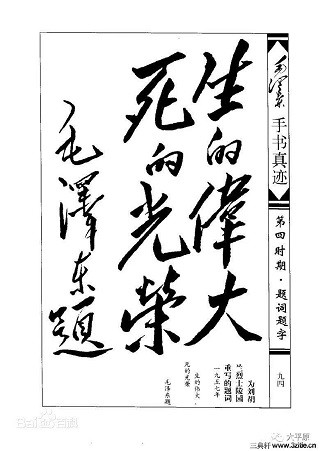 生的偉大
死的光榮
毛澤东題
毛澤东
手书真迹
第四时期·题词题字
九四
为刘胡
兰烈士陵园
重写的题词
一九五七年
生的伟大，
死的光荣
毛泽东题
Baidu百科
六平原
三典轩 www.32tile.cn